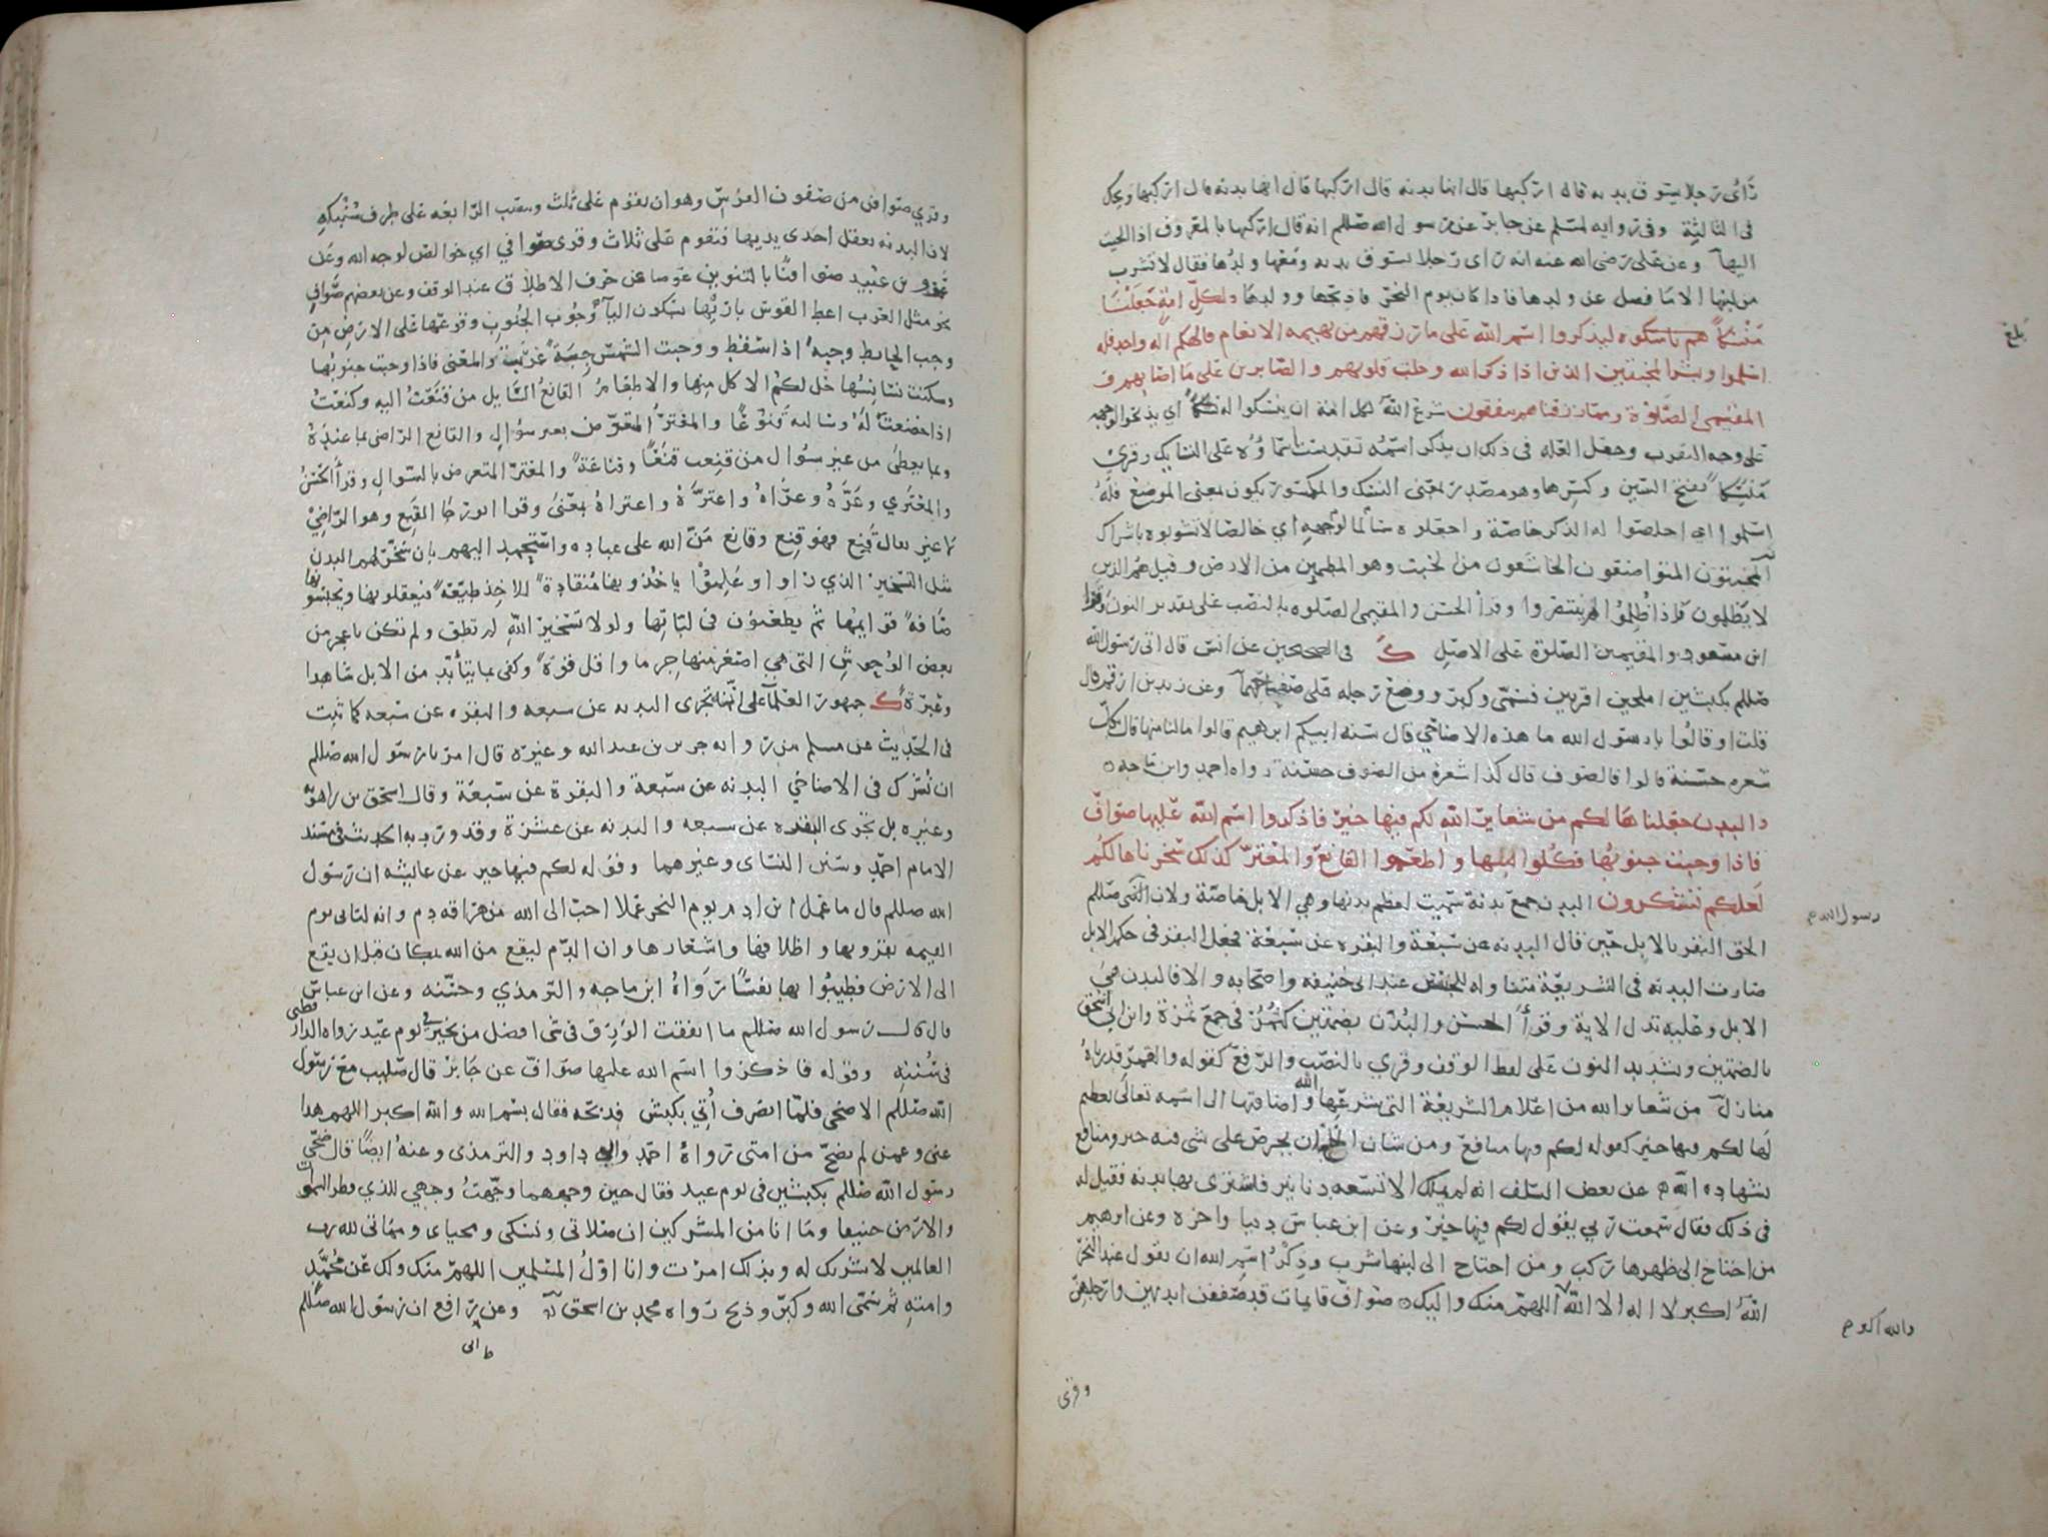 رَأى رجلا يسوق بدنه قال اركبها قال انها بدنه قال اركبها قال انها بدنه قال اركبها ويحك
فى الثالثة وفى روايه لمسلم عن جابر عن رسول الله صللم انه قال اركبها بالمعروف اذا الجيت
اليها وعن على رضى الله عنه انه راى رجلا يسوق بدنه ومعها ولدها فقال لا تشرب
من لبنها الا ما فضل عن ولدها فاذا كان يوم النحر فاذبحها وولدها ولكل امة جعلنا
منسكا ليذكروا اسم الله على ما رزقهم من بهيمه الانعام فالهكم اله واحد فله
اسلموا وبشر المخبتين الذين اذا ذكر الله وجلت قلوبهم والصابرين على ما اصابهم و
المقيمى الصلوة ومما رزقناهم ينفقون شرع الله لكل امة ان ينسكوا له اي يذبحوا لوجهه
على وجه التقرب وجعل العله فى ذلك ان يذكر اسمه تقدست اسماؤه على النسايك وقرئ
منسكا بفتح السين وكسرها وهو مصدر بمعنى النسك والمكسور يكون بمعنى الموضع فله
اسلموا اي اخلصوا له الذكر خاصة واجعلوه سالما لوجهه اي خالصا لا تشوبوه باشراك
المخبتون المتواضعون الخاشعون من الخبت وهو المطمين من الارض وقيل هم الذين
لا يظلمون واذا ظلموا لم ينتصروا وقرأ الحسن والمقيمى الصلوه بالنصب على تقدير النون وقرأ
ابن مسعود والمقيمين الصلوة على الاصل ك فى الصحيحين عن انس قال اتى رسول الله
صللم بكبشين املحين اقرنين فسمى وكبر ووضع رجله على صفاحهما وعن زيد بن ارقم قال
قلت او قالوا يا رسول الله ما هذه الاضاحي قال سنه ابيكم ابرهيم قالوا ما لنا منها قال بكل
شعره حسنة قالوا فالصوف قال كذا شعرة من الصوف حسنة رواه احمد وابن ماجه
والبدن جعلناها لكم من شعاير الله لكم فيها خير فاذكروا اسم الله عليها صواف
فاذا وجبت جنوبها فكلوا منها واطعموا القانع والمعتر كذلك سخرناها لكم
لعلكم تشكرون البدن جمع بدنة سميت لعظم بدنها وهي الابل خاصة ولان النبى صللم
رسول الله م
الحق البقر بالابل حين قال البدنه عن سبعة والبقره عن سبعة فجعل البقر فى حكم الابل
صارت البدنه فى الشريعة متناوله للجنسين عند ابى حنيفه واصحابه والا فالبدن هي
الابل وعليه تدل الاية وقرأ الحسن والبدن بضمتين كثمر فى جمع ثمرة وابن ابي اسحق
بالضمتين وتشديد النون على لفظ الوقف وقري بالنصب والرفع كقوله والقمر قدرناه
منازل من شعاير الله من اعلام الشريعة التى شرعها الله واضافتها الى اسمه تعالى تعظيم
لها لكم فيها خير كقوله لكم فيها منافع ومن شان الحاج ان يحرص على شى فيه خير ومنافع
بشهاده الله عن بعض السلف انه لم يملك الا تسعه دنانير فاشترى بها بدنه فقيل له
فى ذلك فقال سمعت ربي يقول لكم فيها خير وعن ابن عباس دنيا واخره وعن ابرهيم
من احتاج الى ظهرها ركب ومن احتاج الى لبنها شرب وذكر اسم الله ان يقول عند النحر
الله اكبر لا اله الا الله اللهم منك واليك صواف قايمات قد صففن ايديهن وارجلهن
والله اكبر م
وقرى
وقري صوافن من صفون الفرس وهو ان يقوم على ثلث وينصب الرابعه على طرف سنبكه
لان البدنه تعقل احدى يديها فتقوم على ثلاث وقرى صوافي اي خوالص لوجه الله وعن
عمرو بن عبيد صوافنا بالتنوين عوضا عن حرف الاطلاق عند الوقف وعن بعضهم صواف
نحو مثل العرب اعط القوس باريها بسكون اليا وجوب الجنوب وقوعها على الارض من
وجب الحايط وجبة اذا سقط ووجبت الشمس جبة غربت والمعنى فاذا وجبت جنوبها
وسكنت نسايسها حل لكم الاكل منها والاطعام القانع السايل من قنعت اليه وكنعت
اذا خضعت له وسالته قنوعا والمعتر المعترض بغير سؤال والقانع الراضى بما عنده
وبما يعطى من غير سؤال من قنعت قنعا وقناعة والمعتر المتعرض بالسوال وقرأ الحسن
والمعتري وعره وعراه واعتره واعتراه بمعنى وقرا ابو رجا القنع وهو الراضي
لا غير يقال قنع فهو قنع وقانع من الله على عباده واستحمد اليهم بان سخر لهم البدن
مثل التسخير الذي راوا وعلموا ياخذونها منقادة للاخذ طيعة فيعقلونها ويحبسونها
صافه قوايمها ثم يطعنون فى لباتها ولولا تسخير الله لم تطق ولم تكن باعجز من
بعض الوحوش التى هي اصغر منها جرما واقل قوة وكفى بما يتأبد من الابل شاهدا
وعبرة ك جمهور العلما على انه تجزى البدنه عن سبعه والبقره عن سبعه كما ثبت
فى الحديث عن مسلم من روايه جابر بن عبد الله وغيره قال امرنا رسول الله صللم
ان نشترك فى الاضاحي البدنه عن سبعة والبقرة عن سبعة وقال اسحق بن راهويه
وغيره بل تجزى البقره عن سبعه والبدنه عن عشرة وقد ورد به الحديث فى مسند
الامام احمد وسنن النساى وغيرهما وقوله لكم فيها خير عن عايشه ان رسول
الله صللم قال ما عمل ابن ادم يوم النحر عملا احب الى الله من هراقه دم وانه لتاتى يوم
القيمه بقرونها واظلافها واشعارها وان الدم ليقع من الله بمكان قبل ان يقع
الى الارض فطيبوا بها نفسا رواه ابن ماجه والترمذي وحسنه وعن ابن عباس
قال قال رسول الله صللم ما انفقت الورق فى شى افضل من نحير فى يوم عيد رواه الدارقطنى
فى سننه وقوله فاذكروا اسم الله عليها صواف عن جابر قال صليت مع رسول
الله صللم الاضحى فلما انصرف أتي بكبش فذبحه فقال بسم الله والله اكبر اللهم هذا
عنى وعمن لم يضح من امتى رواه احمد وابو داود والترمذى وعنه ايضا قال ضحى
رسول الله صللم بكبشين فى يوم عيد فقال حين وجههما وجهت وجهي للذي فطر السموات
والارض حنيفا وما انا من المشركين ان صلاتى ونسكى ومحياى ومماتى لله رب
العالمين لا شريك له وبذلك امرت وانا اول المسلمين اللهم منك ولك عن محمد
وامته ثم سمى الله وكبر وذبح رواه محمد بن اسحق وعن ابى رافع ان رسول الله صللم